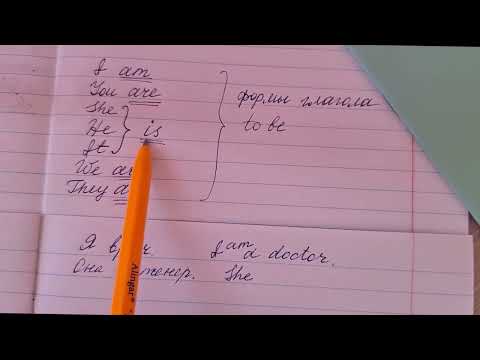 I am
You are
She
He is
It
We
They
формы глагола
to be
Я
I am a doctor.
Она
She
Alingar